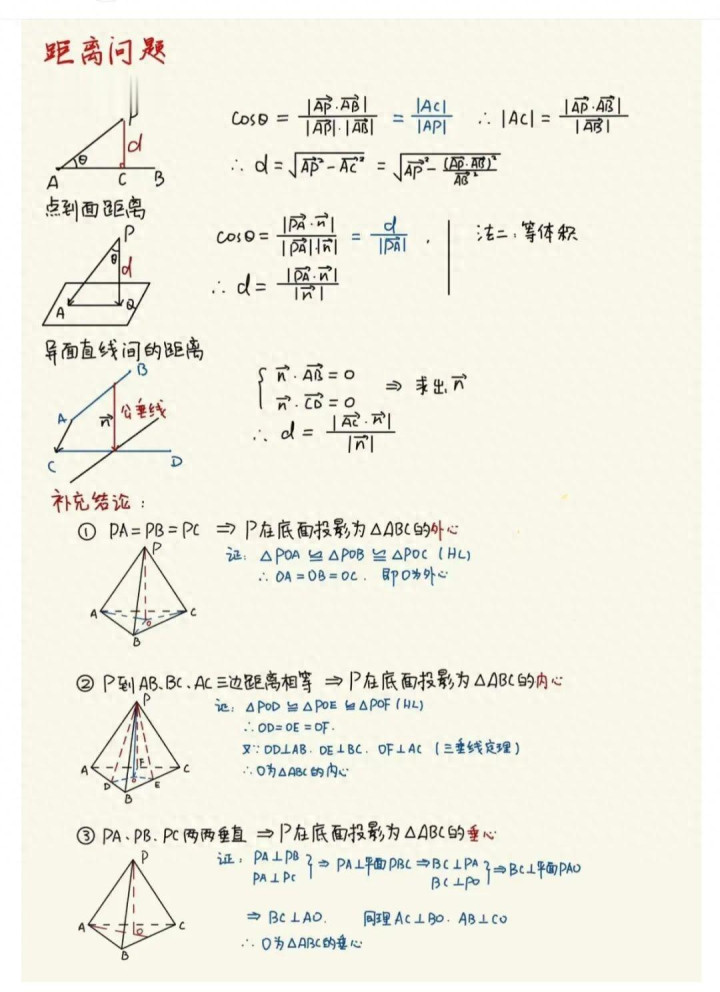 距离问题
P
d
θ
A C B
cosθ = |AP→·AB→| / |AP→|·|AB→| = |AC| / |AP| ∴ |AC| = |AP→·AB→| / |AB→|
∴ d = √(AP→² - AC→²) = √(AP→² - (AP→·AB→)² / AB→²)
点到面距离
P
θ
d
A Q
cosθ = |PA→·n→| / |PA→||n→| = d / |PA→| .
∴ d = |PA→·n→| / |n→|
法二:等体积
异面直线间的距离
B
A n→ 公垂线
C D
{ n→·AB→ = 0
n→·CD→ = 0 ⇒ 求出 n→
∴ d = |AC→·n→| / |n→|
补充结论:
① PA = PB = PC ⇒ P在底面投影为△ABC的外心
证: △POA ≌ △POB ≌ △POC (HL)
∴ OA = OB = OC. 即O为外心
P
A O C
B
② P到AB、BC、AC三边距离相等 ⇒ P在底面投影为△ABC的内心
证: △POD ≌ △POE ≌ △POF (HL)
∴ OD = OE = OF.
又∵ OD⊥AB. OE⊥BC. OF⊥AC (三垂线定理)
∴ O为△ABC的内心
P
A F C
D O E
B
③ PA、PB、PC两两垂直 ⇒ P在底面投影为△ABC的垂心
证: PA⊥PB
PA⊥PC } ⇒ PA⊥平面PBC ⇒ BC⊥PA
BC⊥PO } ⇒ BC⊥平面PAO
⇒ BC⊥AO. 同理 AC⊥BO. AB⊥CO
∴ O为△ABC的垂心
P
A O C
B